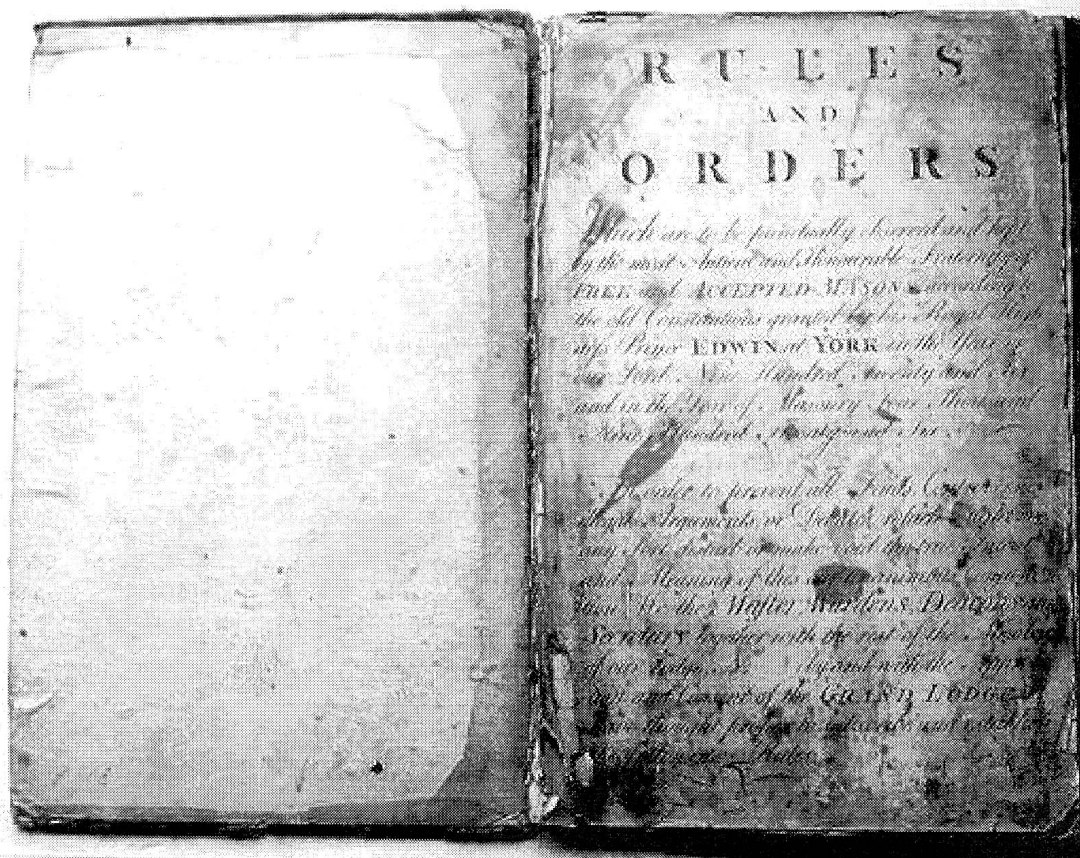 RULES
AND
ORDERS
Which are to be punctually observed and kept
by the most Antient and Honourable Fraternity of
FREE and ACCEPTED MASONS according to
the old Constitutions granted by his Royal High
ness Prince EDWIN at YORK in the Year of
our Lord Nine Hundred twenty and Six
and in the Year of Masonry four Thousand
Nine Hundred twenty and Six
In order to prevent all Feuds
Arguments or Debates which
any
and Meaning of this our unanimous
We the Master Wardens, Deacons and
Secretary together with the rest of the
of our Lodge by and with the
and Consent of the GRAND LODGE
have thought proper to and
Rules